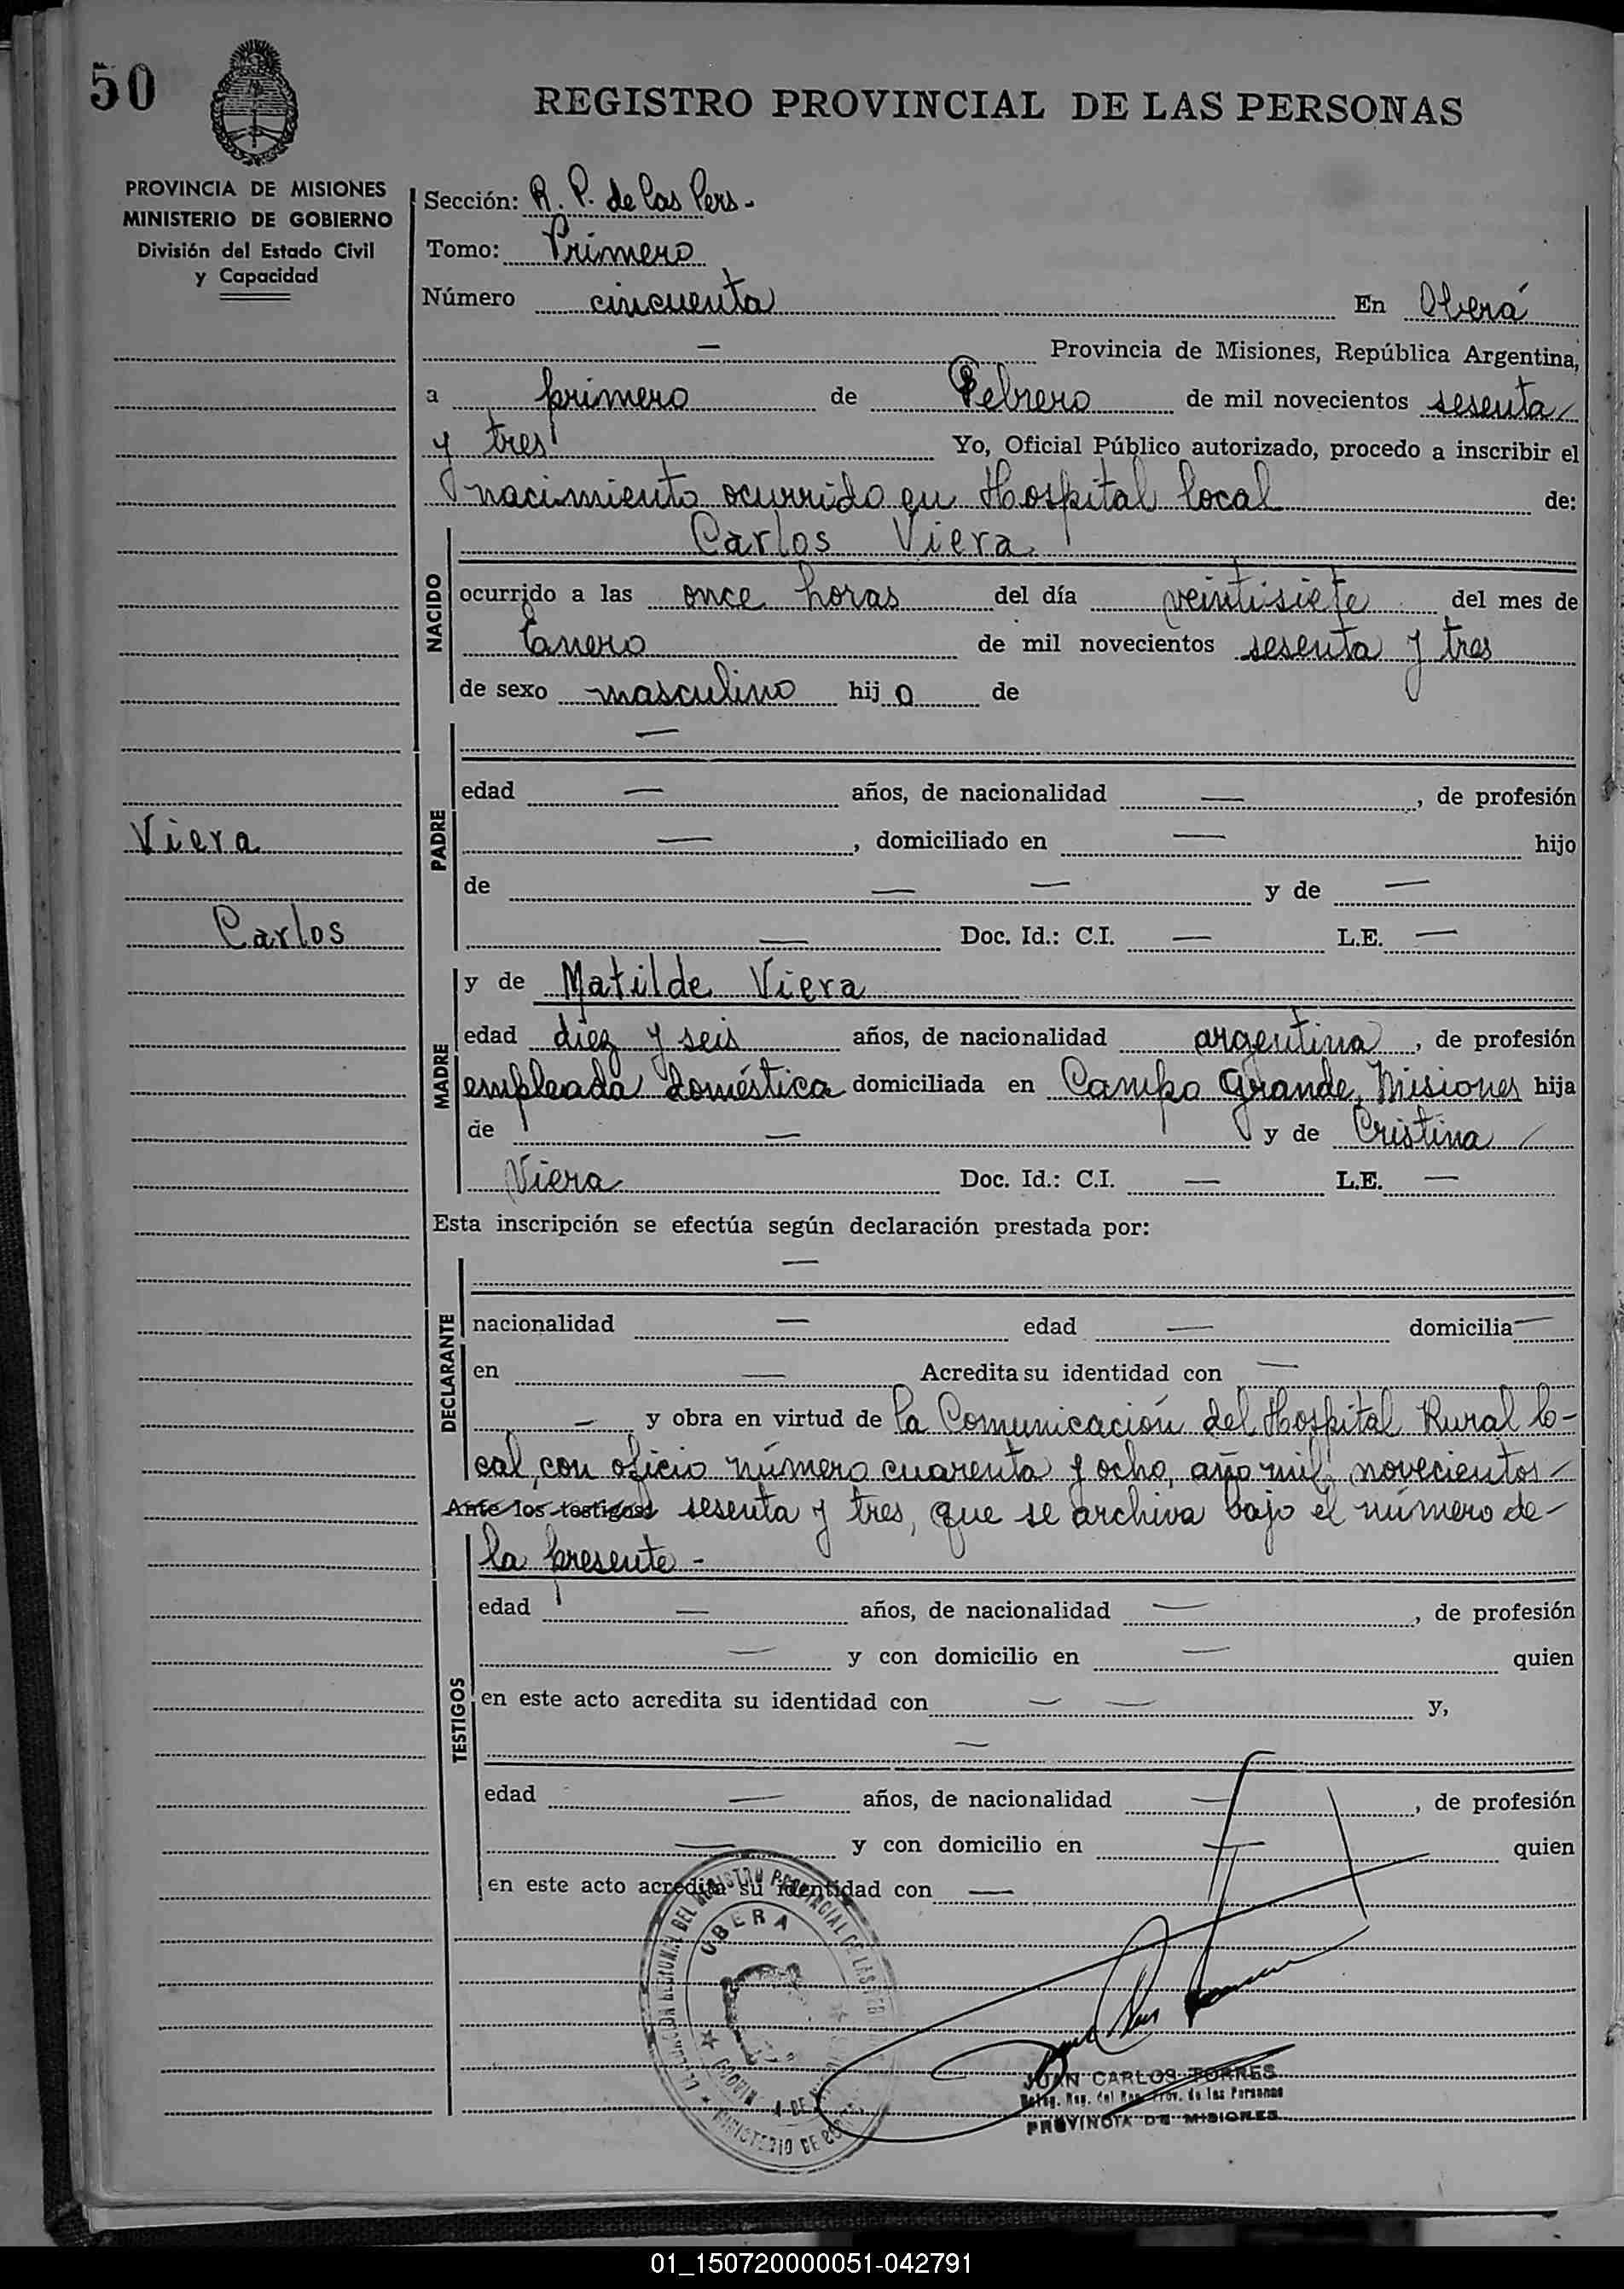 50
REGISTRO PROVINCIAL DE LAS PERSONAS
PROVINCIA DE MISIONES
MINISTERIO DE GOBIERNO
División del Estado Civil
y Capacidad
Sección: R. P. de las Pers.
Tomo: Primero
Número cincuenta En Oberá
— Provincia de Misiones, República Argentina,
a primero de Febrero de mil novecientos sesenta
y tres Yo, Oficial Público autorizado, procedo a inscribir el
nacimiento ocurrido en Hospital local de:
Carlos Viera
NACIDO
ocurrido a las once horas del día veintisiete del mes de
Enero de mil novecientos sesenta y tres
de sexo masculino hijo de
—
PADRE
edad — años, de nacionalidad —, de profesión
Viera
—, domiciliado en — hijo
de — — y de —
Carlos
— Doc. Id.: C.I. — L.E. —
y de Matilde Viera
MADRE
edad diez y seis años, de nacionalidad argentina, de profesión
empleada doméstica domiciliada en Campo Grande, Misiones hija
de — y de Cristina
Viera Doc. Id.: C.I. — L.E. —
Esta inscripción se efectúa según declaración prestada por:
—
DECLARANTE
nacionalidad — edad — domicilia —
en — Acredita su identidad con —
— y obra en virtud de la Comunicación del Hospital Rural lo-
cal, con oficio número cuarenta y ocho, año mil novecientos
Ante los testigos: sesenta y tres, que se archiva bajo el número de
la presente -
TESTIGOS
edad — años, de nacionalidad —, de profesión
— y con domicilio en — quien
en este acto acredita su identidad con — — y,
—
edad — años, de nacionalidad —, de profesión
— y con domicilio en — quien
en este acto acredita su identidad con —
DEL REGISTRO PROVINCIAL DE LAS
OBERA
MINISTERIO DE
JUAN CARLOS TORRES
Deleg. Reg. del Reg. Prov. de las Personas
PROVINCIA DE MISIONES
01_150720000051-042791